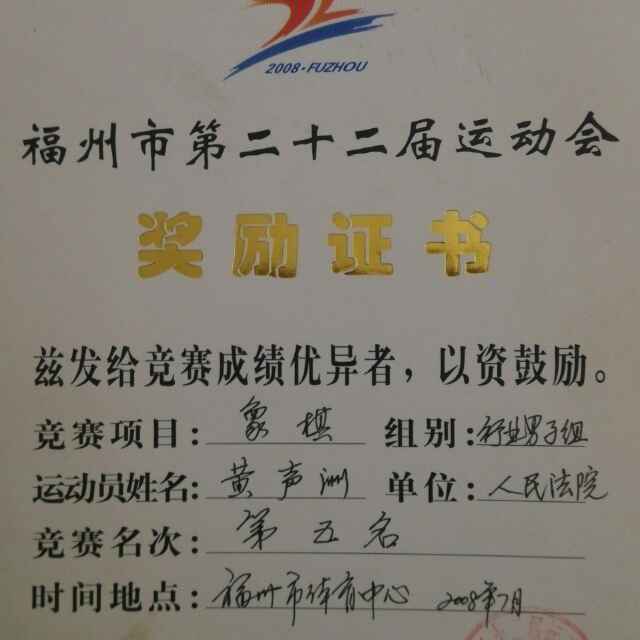 2008·FUZHOU
福州市第二十二届运动会
奖励证书
兹发给竞赛成绩优异者，以资鼓励。
竞赛项目：象棋 组别：行业男子组
运动员姓名：黄声洲 单位：人民法院
竞赛名次：第五名
时间地点：福州市体育中心 2008年7月